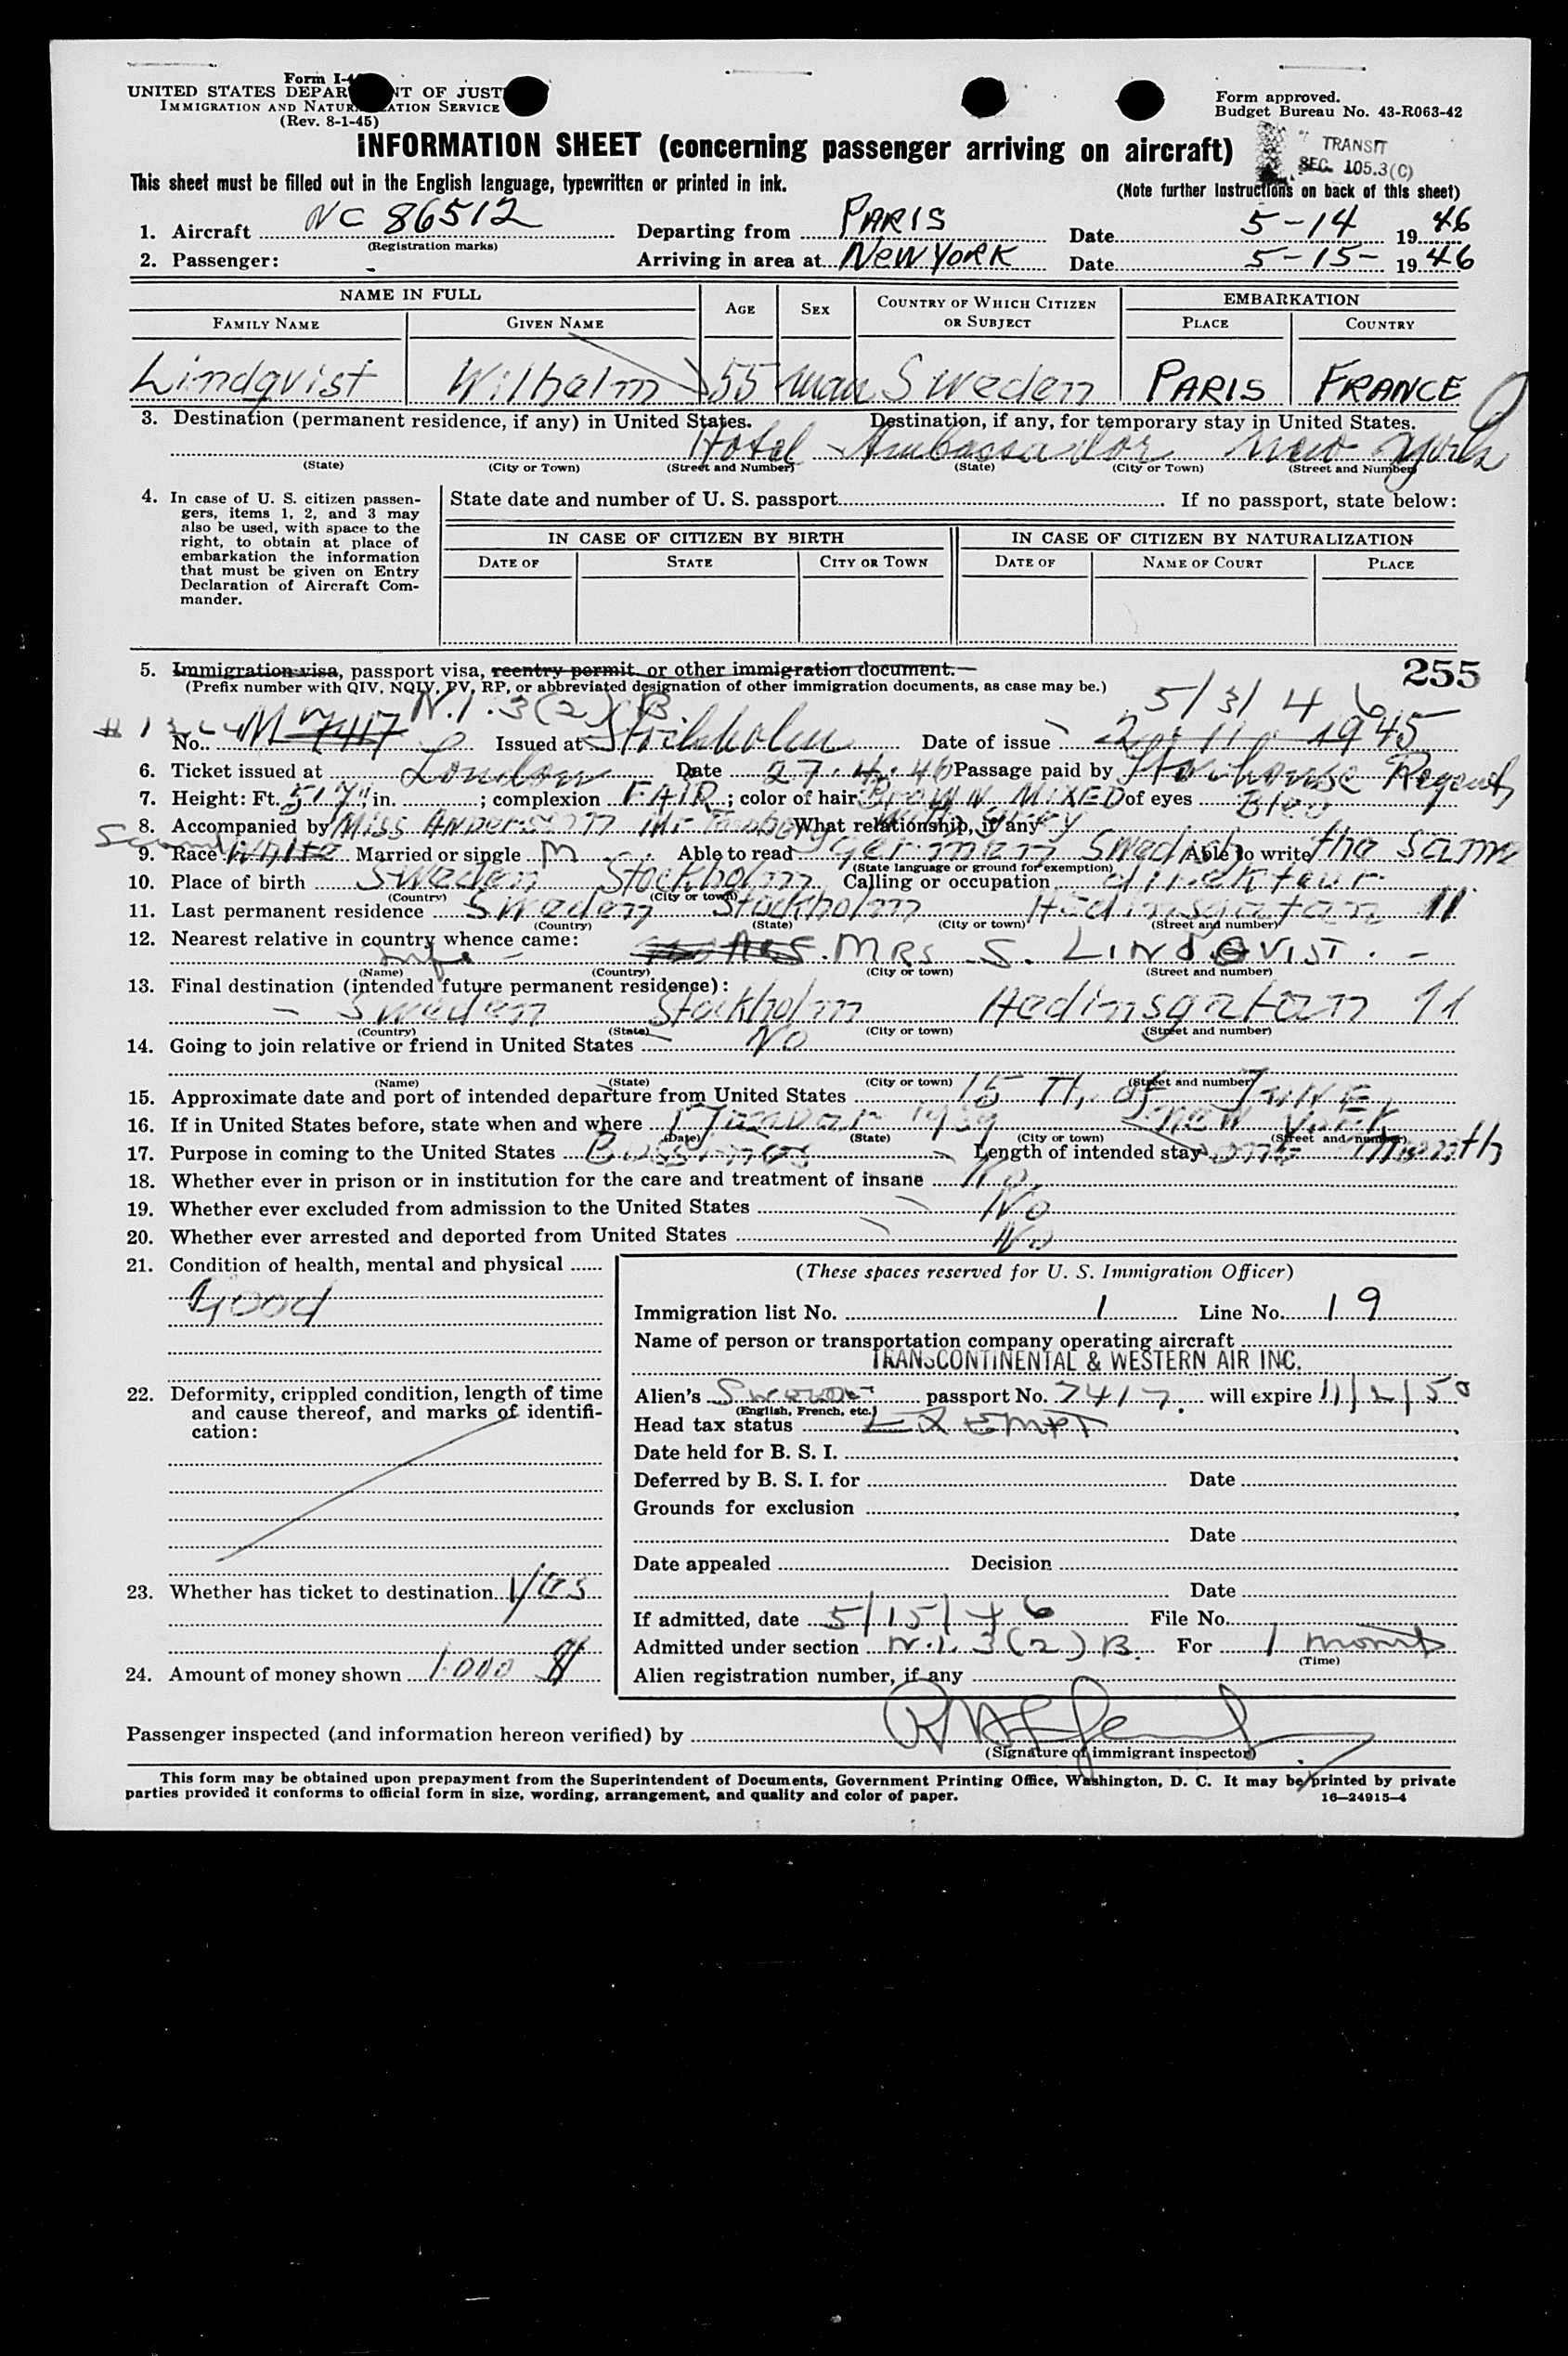 Form I-4
UNITED STATES DEPAR NT OF JUST
IMMIGRATION AND NATUR ATION SERVICE
(Rev. 8-1-45)
Form approved.
Budget Bureau No. 43-R063-42
INFORMATION SHEET (concerning passenger arriving on aircraft)
TRANSIT
SEC. 105.3(C)
This sheet must be filled out in the English language, typewritten or printed in ink.
(Note further Instructions on back of this sheet)
1. Aircraft NC 86512 Departing from PARIS Date 5-14 1946
(Registration marks)
2. Passenger: Arriving in area at New York Date 5-15- 1946
NAME IN FULL AGE SEX COUNTRY OF WHICH CITIZEN OR SUBJECT EMBARKATION
FAMILY NAME GIVEN NAME PLACE COUNTRY
Lindqvist Wilhelm 55 man Sweden PARIS FRANCE
3. Destination (permanent residence, if any) in United States. Destination, if any, for temporary stay in United States.
Hotel Ambassador New York
(State) (City or Town) (Street and Number) (State) (City or Town) (Street and Number)
4. In case of U. S. citizen passengers, items 1, 2, and 3 may also be used, with space to the right, to obtain at place of embarkation the information that must be given on Entry Declaration of Aircraft Commander.
State date and number of U. S. passport If no passport, state below:
IN CASE OF CITIZEN BY BIRTH IN CASE OF CITIZEN BY NATURALIZATION
DATE OF STATE CITY OR TOWN DATE OF NAME OF COURT PLACE
5. Immigration visa, passport visa, reentry permit, or other immigration document.
255
(Prefix number with QIV, NQIV, PV, RP, or abbreviated designation of other immigration documents, as case may be.)
N.I. 3(2) B 5/3/46
No. M 7417 Issued at Stockholm Date of issue 2/11 1945
6. Ticket issued at London Date 27.4.46 Passage paid by Regent
7. Height: Ft. 5'7", in. ; complexion FAIR ; color of hair Brown MIXED of eyes Bleu
with grey
8. Accompanied by Miss Anderson Mr What relationship, if any
9. Race White Married or single M Able to read german Swedish Able to write the same
(State language or ground for exemption)
10. Place of birth Sweden Stockholm Calling or occupation direktour
(Country) (City or town)
11. Last permanent residence Sweden Stockholm Hedinsgatan 11
(Country) (State) (City or town) (Street and number)
12. Nearest relative in country whence came:
wife - MRS S. LINDQVIST. -
(Name) (Country) (City or town) (Street and number)
13. Final destination (intended future permanent residence):
- Sweden Stockholm Hedinsgatan 11
(Country) (State) (City or town) (Street and number)
14. Going to join relative or friend in United States No
(Name) (State) (City or town) (Street and number)
15. Approximate date and port of intended departure from United States 15 Th. of JUNE
16. If in United States before, state when and where Januar 1939 New York
(Date) (State) (City or town) (Street and number)
17. Purpose in coming to the United States Business Length of intended stay one month
18. Whether ever in prison or in institution for the care and treatment of insane No.
19. Whether ever excluded from admission to the United States No
20. Whether ever arrested and deported from United States No
21. Condition of health, mental and physical
Good
22. Deformity, crippled condition, length of time and cause thereof, and marks of identification:
23. Whether has ticket to destination Yes
24. Amount of money shown 1000 $
(These spaces reserved for U. S. Immigration Officer)
Immigration list No. 1 Line No. 19
Name of person or transportation company operating aircraft
TRANSCONTINENTAL & WESTERN AIR INC.
Alien's Swedish passport No. 7417. will expire 11/2/50
(English, French, etc.)
Head tax status EXEMPT
Date held for B. S. I.
Deferred by B. S. I. for Date
Grounds for exclusion
Date
Date appealed Decision
Date
If admitted, date 5/15/46 File No.
Admitted under section N.I. 3(2) B. For 1 month
(Time)
Alien registration number, if any
Passenger inspected (and information hereon verified) by
(Signature of immigrant inspector)
This form may be obtained upon prepayment from the Superintendent of Documents, Government Printing Office, Washington, D. C. It may be printed by private
parties provided it conforms to official form in size, wording, arrangement, and quality and color of paper.
16—24915-4